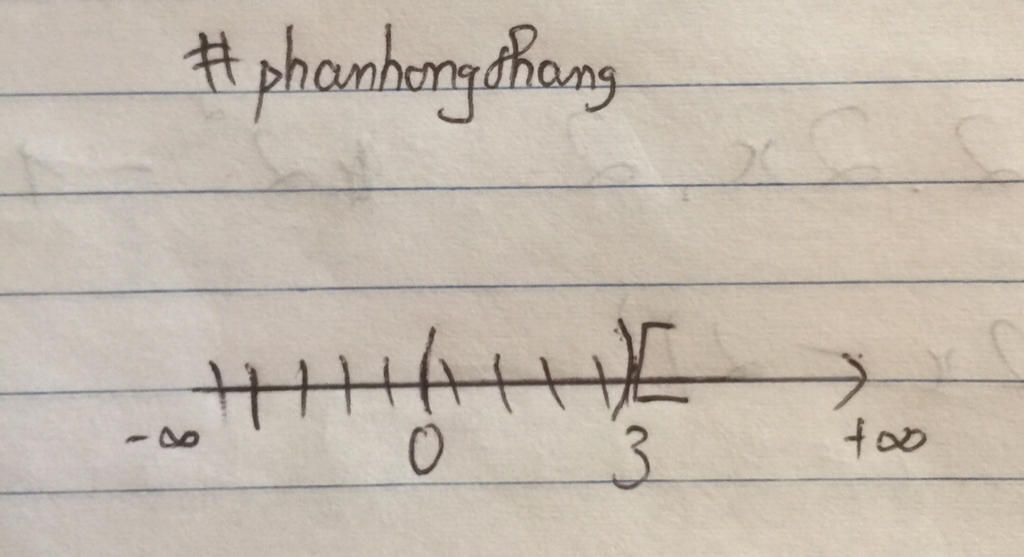 #phanhongthang
)[
-∞ 0 3 +∞